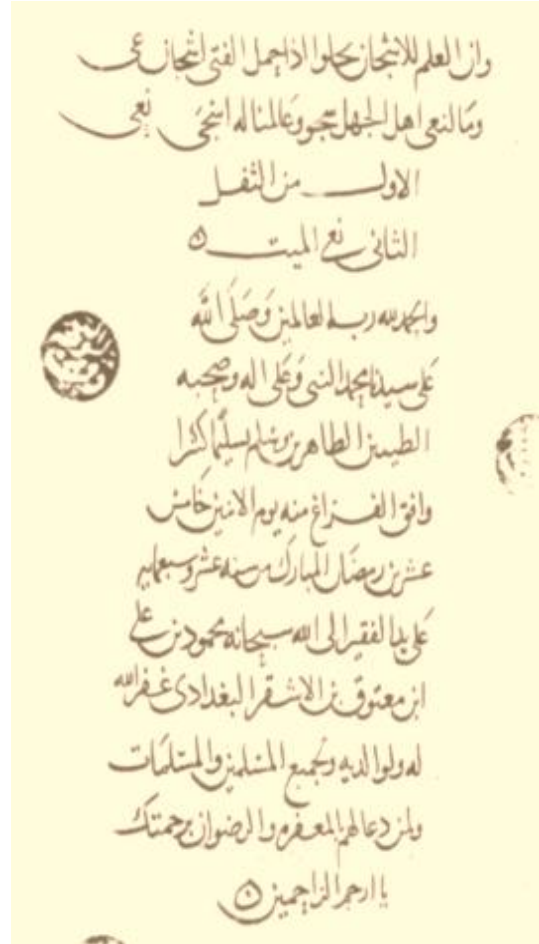 وان العلم للانجان يحلوا اذا جهل الفتى
وما لنعى اهل الجهل وعالمنا له نعى
الاول من الثقل
الثانى نعى الميت
والحمد لله رب العالمين وصلى الله
على سيدنا محمد النبى وعلى اله وصحبه
الطيبين الطاهرين وسلم تسليما كثيرا
وافق الفراغ منه يوم الاثنين خامس
عشرين رمضان المبارك من سنه عشر وسبعمايه
على يد الفقير الى الله سبحانه محمود بن على
ابن معتوق بن الاشقر البغدادى غفر الله
له ولوالديه ولجميع المسلمين والمسلمات
ولمن دعا لهم بالمغفره والرضوان برحمتك
يا ارحم الراحمين